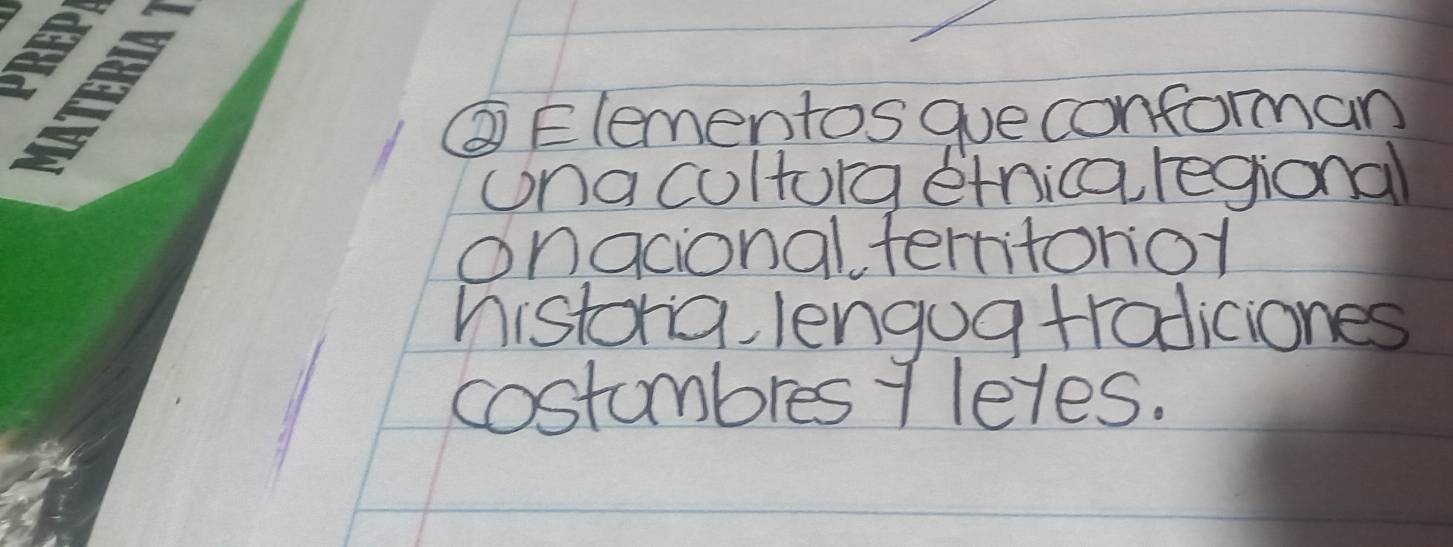 PREPA
MATERIA T
② Elementos que conforman
una cultura étnica, regional
o nacional. territorio y
historia, lengua tradiciones
costumbres y leyes.